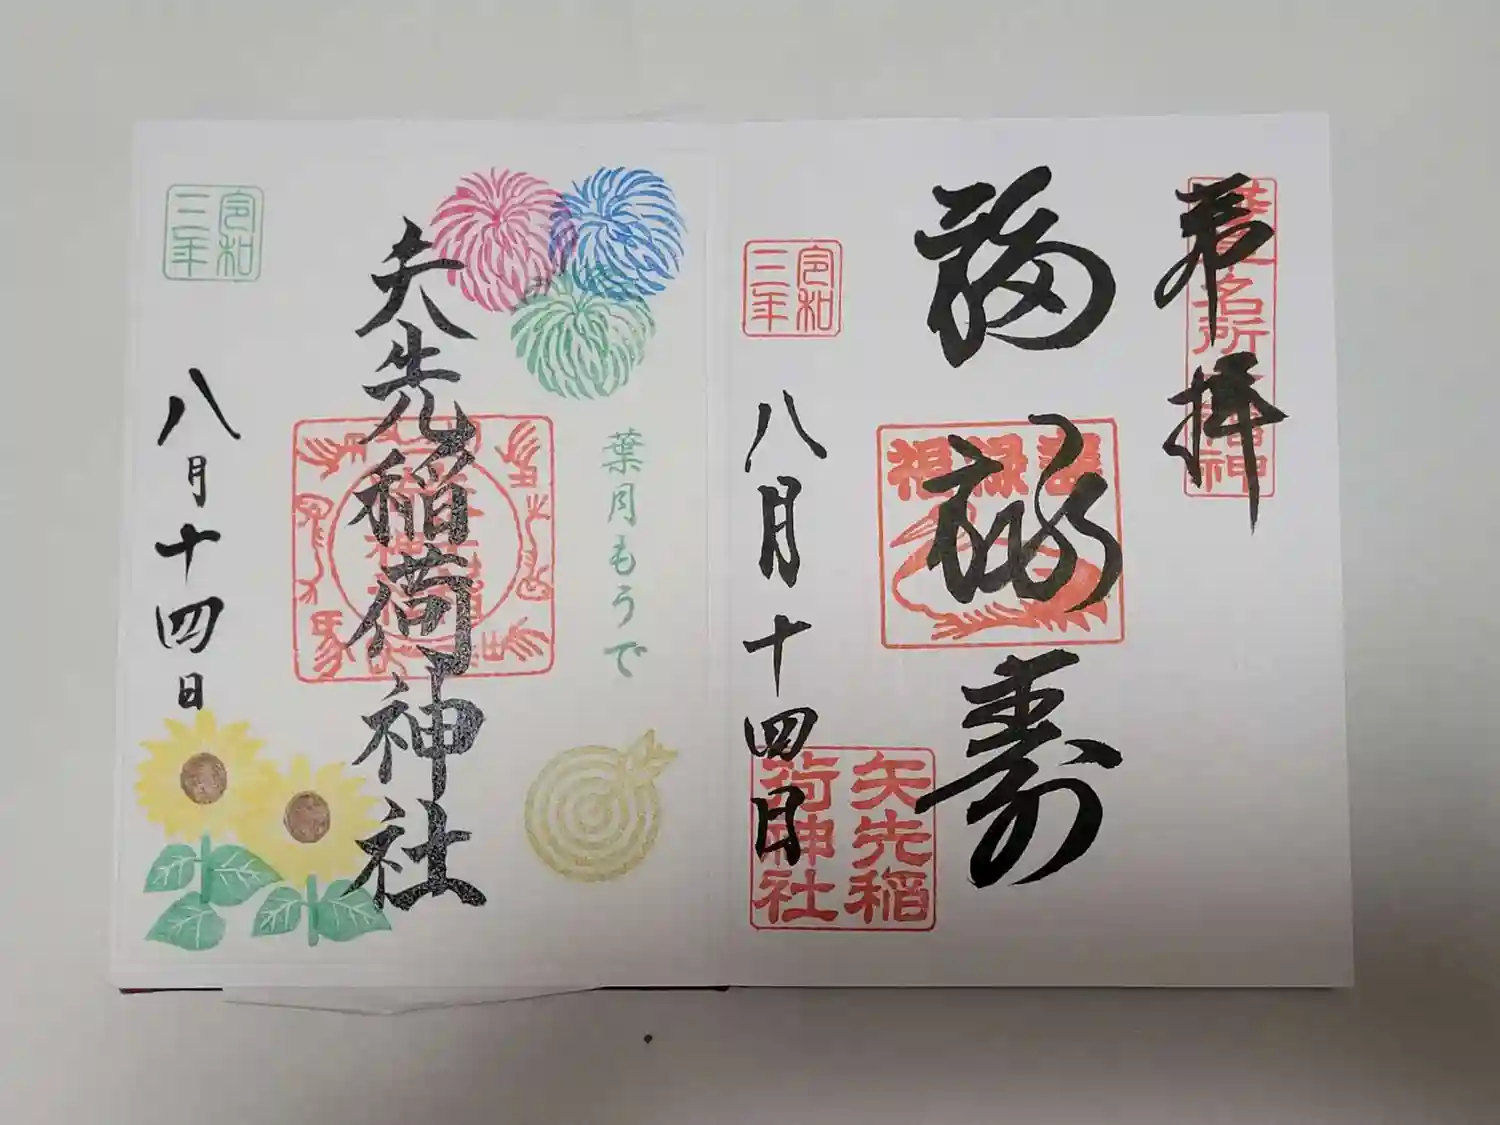 奉拝
福禄寿
福禄寿
令和
三年
八月十四日
矢先稲
荷神社
葉月もうで
矢先稲荷神社
令和
三年
八月十四日